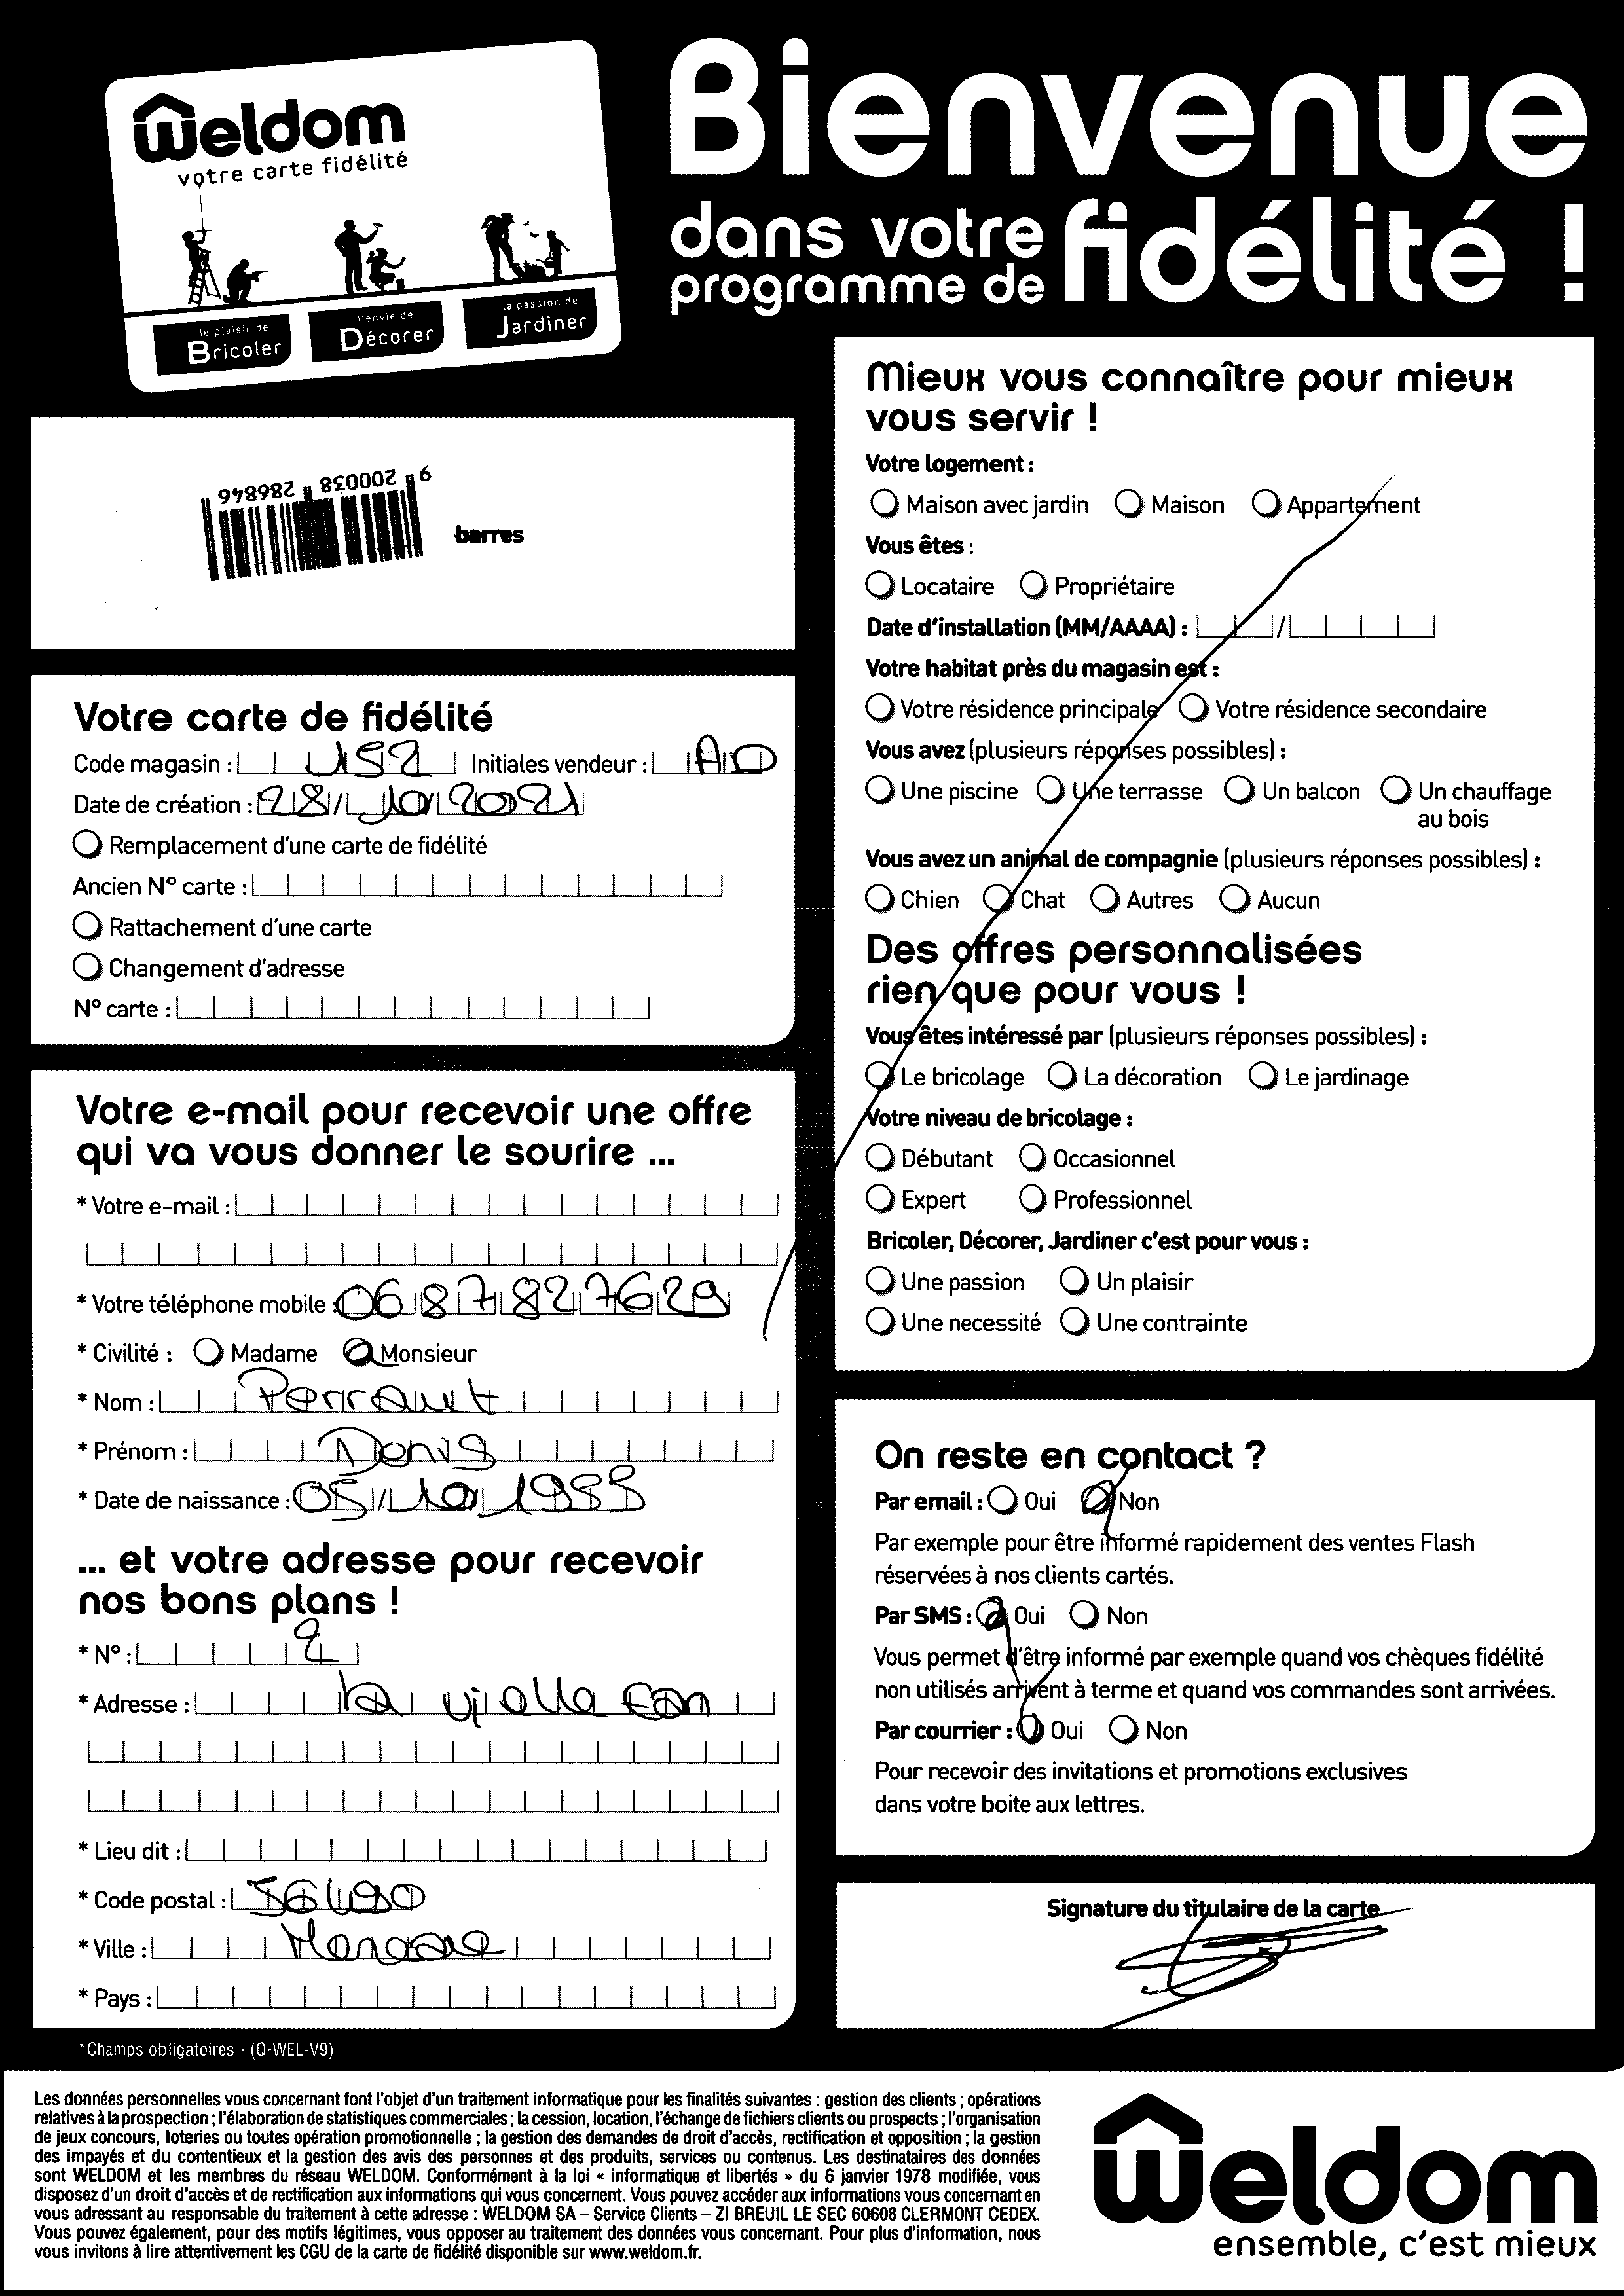 Weldom
votre carte fidélité
le plaisir de
Bricoler
l'envie de
Décorer
la passion de
Jardiner
Bienvenue
dans votre
programme de fidélité !
9 200038 286846
barres
Votre carte de fidélité
Code magasin : Initiales vendeur : AD
Date de création : 28/10/2021
Remplacement d'une carte de fidélité
Ancien N° carte :
Rattachement d'une carte
Changement d'adresse
N° carte :
Votre e-mail pour recevoir une offre
qui va vous donner le sourire ...
* Votre e-mail :
* Votre téléphone mobile : 0687827629
* Civilité : Madame Monsieur
* Nom : Perrault
* Prénom : Denis
* Date de naissance : 05/10/1988
... et votre adresse pour recevoir
nos bons plans !
* N° : 2
* Adresse : la vielle
* Lieu dit :
* Code postal : 56490
* Ville :
* Pays :
*Champs obligatoires - (Q-WEL-V9)
Mieux vous connaître pour mieux
vous servir !
Votre logement :
Maison avec jardin Maison Appartement
Vous êtes :
Locataire Propriétaire
Date d'installation (MM/AAAA) : /
Votre habitat près du magasin est :
Votre résidence principale Votre résidence secondaire
Vous avez (plusieurs réponses possibles) :
Une piscine Une terrasse Un balcon Un chauffage
au bois
Vous avez un animal de compagnie (plusieurs réponses possibles) :
Chien Chat Autres Aucun
Des offres personnalisées
rien que pour vous !
Vous êtes intéressé par (plusieurs réponses possibles) :
Le bricolage La décoration Le jardinage
Votre niveau de bricolage :
Débutant Occasionnel
Expert Professionnel
Bricoler, Décorer, Jardiner c'est pour vous :
Une passion Un plaisir
Une necessité Une contrainte
On reste en contact ?
Par email : Oui Non
Par exemple pour être informé rapidement des ventes Flash
réservées à nos clients cartés.
Par SMS : Oui Non
Vous permet d'être informé par exemple quand vos chèques fidélité
non utilisés arrivent à terme et quand vos commandes sont arrivées.
Par courrier : Oui Non
Pour recevoir des invitations et promotions exclusives
dans votre boite aux lettres.
Signature du titulaire de la carte
Les données personnelles vous concernant font l'objet d'un traitement informatique pour les finalités suivantes : gestion des clients ; opérations
relatives à la prospection ; l'élaboration de statistiques commerciales ; la cession, location, l'échange de fichiers clients ou prospects ; l'organisation
de jeux concours, loteries ou toutes opération promotionnelle ; la gestion des demandes de droit d'accès, rectification et opposition ; la gestion
des impayés et du contentieux et la gestion des avis des personnes et des produits, services ou contenus. Les destinataires des données
sont WELDOM et les membres du réseau WELDOM. Conformément à la loi « informatique et libertés » du 6 janvier 1978 modifiée, vous
disposez d'un droit d'accès et de rectification aux informations qui vous concernent. Vous pouvez accéder aux informations vous concernant en
vous adressant au responsable du traitement à cette adresse : WELDOM SA – Service Clients – ZI BREUIL LE SEC 60608 CLERMONT CEDEX.
Vous pouvez également, pour des motifs légitimes, vous opposer au traitement des données vous concernant. Pour plus d'information, nous
vous invitons à lire attentivement les CGU de la carte de fidélité disponible sur www.weldom.fr.
Weldom
ensemble, c'est mieux